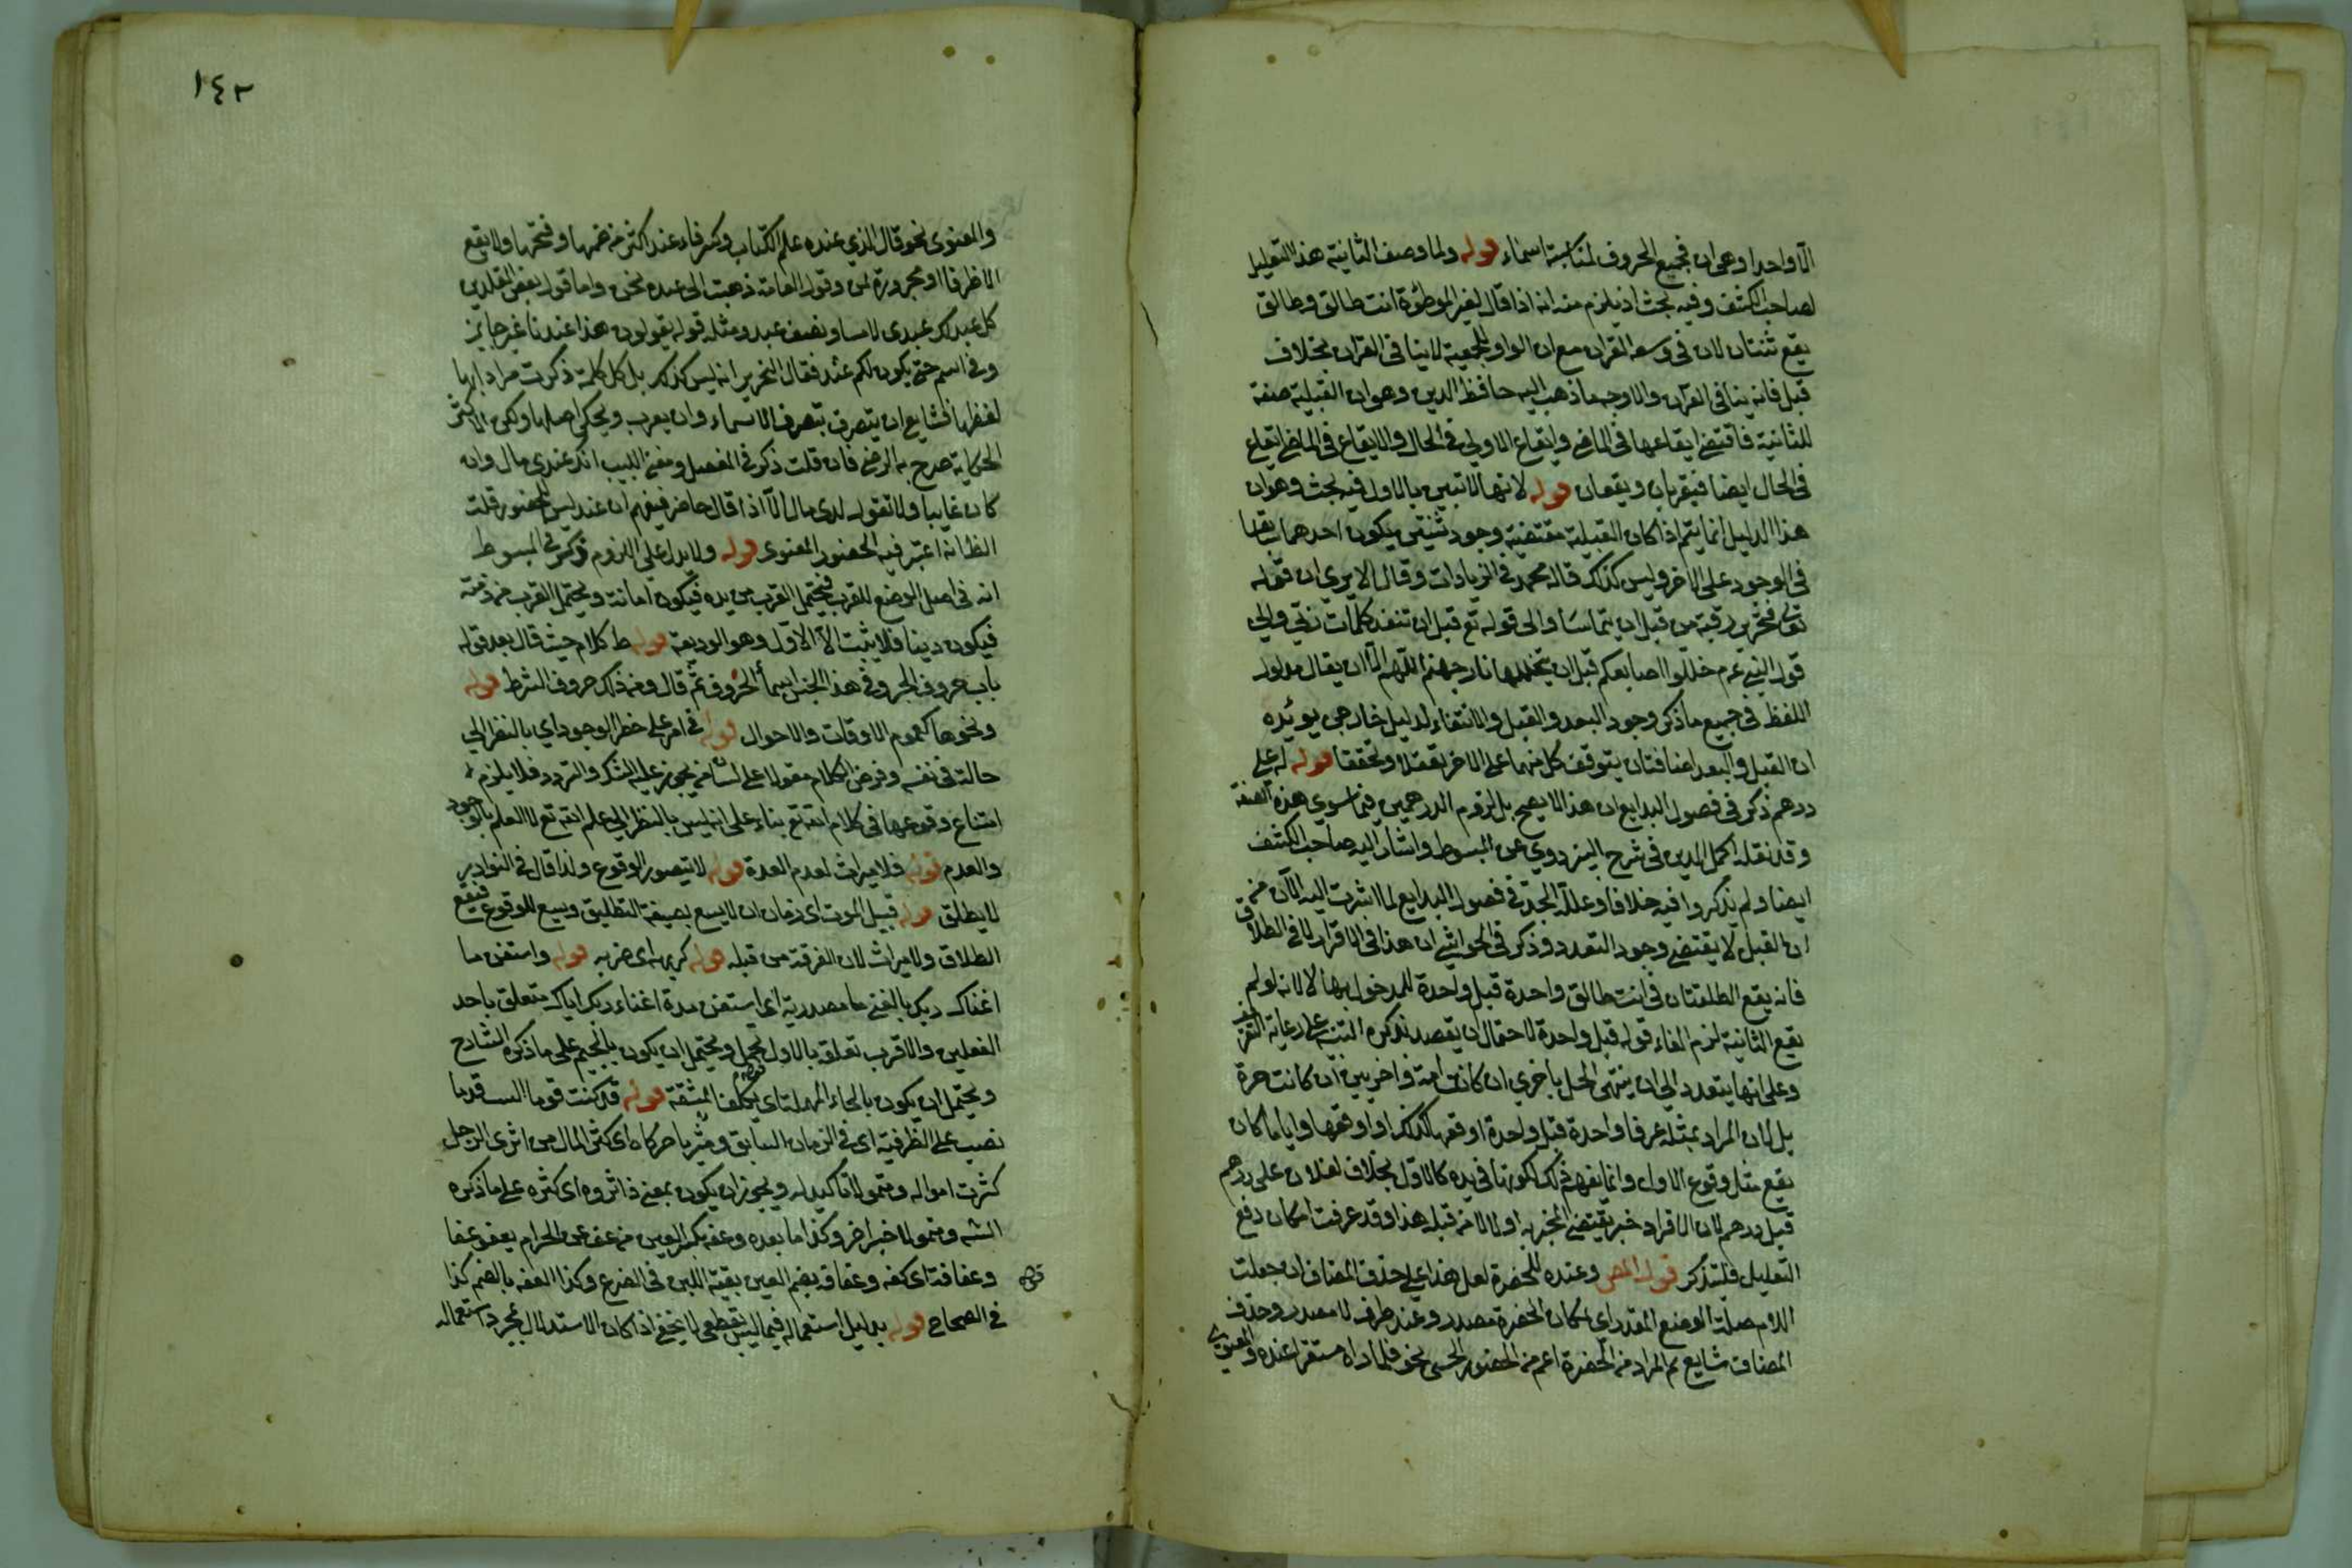 الا واحدا وهي ان جميع الحروف لمناسبة اسماء قوله ولما وصف الثانية هذا التعليل
لصاحب الكشف وفيه بحث اذ يلزم منه انه اذا قال لغير الموطوءة انت طالق وطالق
يقع ثنتان لان في وسعه القران مع ان الواو للجمعية لا ينافي القران بخلاف
قبل فانه ينافي القران والاوجه ما ذهب اليه حافظ الدين وهو ان القبلية صفة
للثانية فاقتضى ايقاعها في الماضي وايقاع الاولى في الحال والايقاع في الماضي ايقاع
في الحال ايضا فيقترنان ويقعان قوله لانها لا تبين بالاول فيه بحث وهو ان
هذا الدليل انما يتم اذا كان القبلية مقتضية وجود شيئين يكون احدهما سابقا
في الوجود على الاخر وليس كذلك قاله محمد في الزيادات وقال الا يرى ان قوله
تع فتحرير رقبة من قبل ان يتماسا والى قوله تع قبل ان تنفد كلمات ربي والى
قول النبي عم خللوا اصابعكم قبل ان يتخللها نار جهنم اللهم الا ان يقال مدلول
اللفظ في جميع ما ذكر وجود البعد والقبل والانتفاء لدليل خارجي يؤيده
ان القبل والبعد اضافتان يتوقف كل منهما على الاخر تعقلا وتحققا قوله له علي
درهم ذكر في فصول البدايع ان هذا لا يصح بل لزوم الدرهمين فيما سوى هذه الصفة
وقد نقله اكمل الدين في شرح البزدوي عن المبسوط واشار اليه صاحب الكشف
ايضا ولم يذكروا فيه خلافا وعلله الجد في فصول البدايع لما اشرت اليه الآن من
ان القبل لا يقتضي وجود التعدد وذكر في الحواشي ان هذا في الاقرار لا في الطلاق
فانه يقع الطلقتان في انت طالق واحدة قبل واحدة للمدخول بها لا لانه لو لم
يقع الثانية لزم الغاء قوله قبل واحدة لاحتمال ان يقصد بذكره التنبيه على رعاية التفريق
وعلى انها يتعدد الى ان ينتهي الحل باخرى ان كانت امة واخريين ان كانت حرة
بل لان المراد بمثله عرفا واحدة قبل واحدة اوقعها كذلك او اوقعها واياما كان
يقع مثل وقوع الاول وانما يفهم ذلك لكونها في يده كالاول بخلاف لفلان علي درهم
قبل درهم لان الاقرار خبر يقتضي المخبر به اولا لا من قبله هذا وقد عرفت امكان دفع
التعليل فليتذكر قوله المص وعنده للحضرة لعل هذا على حذف المضاف ان جعلت
اللام صلة الوضع المقدر اي لمكان الحضرة مصدر وعند ظرف لا مصدر وحذف
المضاف شايع ثم المراد من الحضرة اعم من الحضور الحسي نحو فلما رآه مستقرا عنده والمعنوي
١٤٣
والمعنوى نحو قال الذي عنده علم الكتاب وكسر فاء عند اكثر من ضمها وفتحها ولا يقع
الا ظرفا او مجرورة بمن وقول العامة ذهبت الى عنده لحن واما قول بعض المقلدين
كل عند لك عندي لا يساوي نصف عند ومثله قوله يقولون هذا عندنا غير جايز
ومن انتم حتى يكون لكم عند فقال النحرير انه ليس كذلك بل كل كلمة ذكرت مرادا بها
لفظها فشايع ان يتصرف تصرف الاسماء وان يعرب ويحكى اصلها ولكن الاكثر
الحكاية صرح به الرضي فان قلت ذكر في المفصل ومغني اللبيب انك عندي مال وان
كان غايبا ولا تقول لدي مال الا اذا كان حاضر فيفهم ان عند ليس للحضور قلت
الظ انه اعتبر فيه الحضور المعنوى قوله ولا يدل على اللزوم ذكر في المبسوط
انه في اصل الوضع للقرب فيحتمل القرب من يده فيكون امانة ويحتمل القرب من ذمته
فيكون دينا فلا يثبت الا الاول وهو الوديعة قوله ط كلام حيث قال بعد قوله
باب حروف الجر وفي هذا الجنس اسماء الحروف ثم قال ومن ذلك حروف الشرط قوله
ونحوها كعموم الاوقات والاحوال قوله في امر على خطر الوجود اي بالنظر الى
حالة في نفسه وفرض الكلام مقولا على لسان من يجوز عليه الشك والتردد فلا يلزم
امتناع وقوعها في كلام الله تع بناء على انه ليس بالنظر الى علم الله تع للعلم بالوجود
والعدم قوله فلا ميراث لعدم العدة قوله لا يتصور الوقوع ولذا قال في النوادر
لا يطلق قوله قبيل الموت اي زمان ان لا يسع بصيغة التطليق ويسع للوقوع فيقع
الطلاق ولا ميراث لان الفرقة من قبله قوله كريهه اي ضربه قوله واستغن ما
اغناك ربك بالغنى ما مصدرية اي استغن مدة اغناء ربك اياك متعلق باحد
الفعلين والاقرب تعلقه بالاول تجمل ويحتمل ان يكون بالجيم على ما ذكره الشارح
ويحتمل ان يكون بالحاء المهملة اي تكلف المشقة قوله قد كنت قوما قدما
نصب على الظرفية اي في الزمان السابق ومثريا اي كثر المال من اثرى الرجل
كثرت امواله ومتمولا تاكيد له ويجوز ان يكون بمعنى ذا ثروة اي كثرة على ما ذكره
الشه ومتمولا خبر اخر وكذا ما بعده وعفة بكسر العين من عف عن الحرام يعف عفا
وعفافة اي كفه وعفافة بضم العين بقية اللبن في الضرع وكذا العفة بالضم كذا
في الصحاح قوله بدليل استعماله فيما ليس بقطعي لا يخفى اذا كان الاستدلال بمجرد استعماله